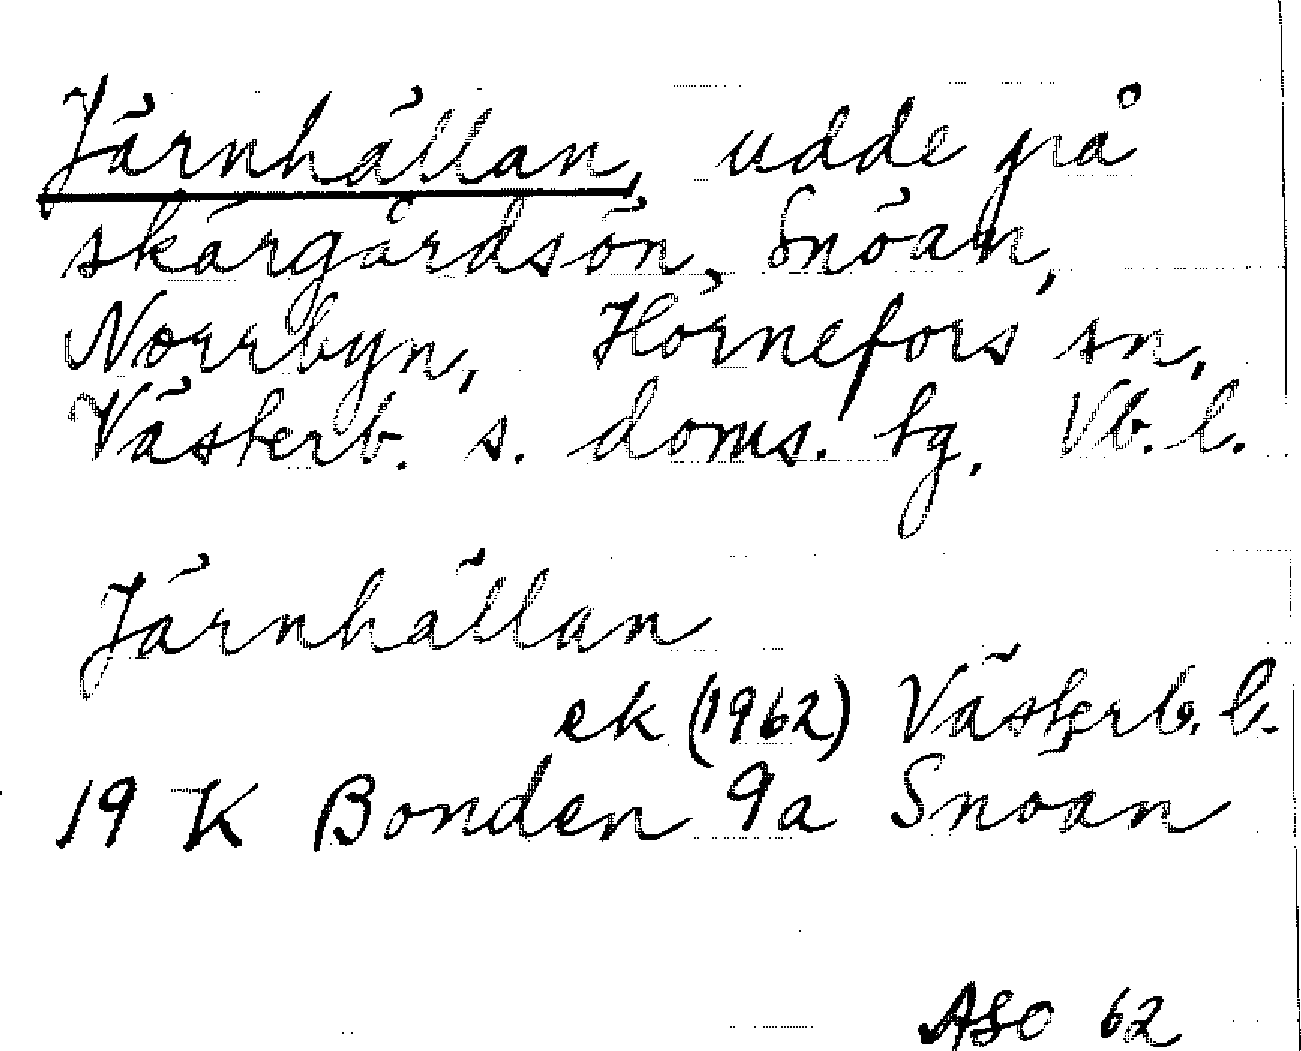 Järnhällan, udde på
skärgårdsön Snöan,
Norrbyn, Hörnefors sn,
Västerb. s. doms. tg, Vb. l.
Järnhällan
ek (1962) Västerb. l.
19 K Bonden 9a Snöan
ASO 62